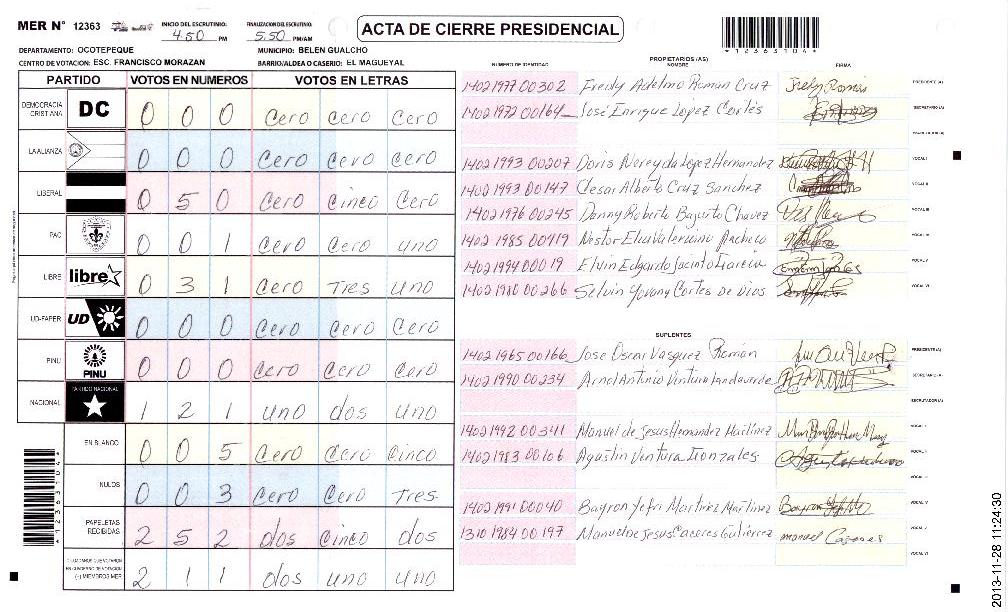 MER N° 12363
INICIO DEL ESCRUTINIO: 4:50 PM
FINALIZACION DEL ESCRUTINIO: 5:50 PM/AM
ACTA DE CIERRE PRESIDENCIAL
*12363104*
DEPARTAMENTO: OCOTEPEQUE MUNICIPIO: BELEN GUALCHO
CENTRO DE VOTACION: ESC. FRANCISCO MORAZAN BARRIO/ALDEA O CASERIO: EL MAGUEYAL
PARTIDO VOTOS EN NUMEROS VOTOS EN LETRAS
DEMOCRACIA CRISTIANA DC 0 0 0 cero cero cero
LA ALIANZA 0 0 0 cero cero cero
LIBERAL 0 5 0 cero cinco cero
PAC 0 0 1 cero cero uno
LIBRE libre 0 3 1 cero Tres uno
UD-FAPER UD 0 0 0 cero cero cero
PINU PINU 0 0 0 cero cero cero
NACIONAL PARTIDO NACIONAL 1 2 1 uno dos uno
EN BLANCO 0 0 5 cero cero cinco
NULOS 0 0 3 cero cero Tres
PAPELETAS RECIBIDAS 2 5 2 dos cinco dos
CIUDADANOS QUE VOTARON EN CUADERNO DE VOTACION (+) MIEMBROS MER 2 1 1 dos uno uno
PROPIETARIOS (AS)
NUMERO DE IDENTIDAD NOMBRE FIRMA
1402 1977 00302 Fredy Adelmo Roman Cruz PRESIDENTE (A)
1402 1972 00164 José Enrique Lopez Cortés SECRETARIO (A)
ESCRUTADOR (A)
1402 1993 00207 Doris Nereyda Lopez Hernandez VOCAL I
1402 1993 00147 Cesar Alberto Cruz Sanchez VOCAL II
1402 1976 00245 Danny Roberto Chavez VOCAL III
1402 1985 00419 Nestor Pacheco VOCAL IV
1402 1994 00019 Elvin Edgardo Jacinto Garcia VOCAL V
1402 1980 00266 Selvin Yovany Cortes de Dios VOCAL VI
SUPLENTES
1402 1965 00166 Jose Oscar Vasquez Román PRESIDENTE (A)
1402 1990 00234 Arnol Antonio Ventura Landaverde SECRETARIO (A)
ESCRUTADOR (A)
1402 1992 00341 Manuel de Jesus Hernandez Martinez VOCAL I
1402 1983 00106 Agustin Ventura Gonzales VOCAL II
1402 1991 00040 Bayron Yefri Martinez Martinez VOCAL IV
1310 1984 00197 Manuel de Jesus Caceres Gutiérrez VOCAL V
VOCAL VI
*12363104*
2013-11-28 11:24:30